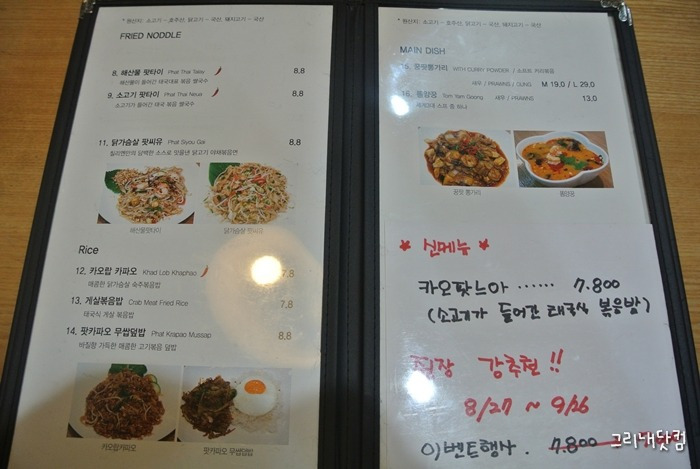 * 원산지: 소고기 - 호주산, 닭고기 - 국산, 돼지고기 - 국산
FRIED NODDLE
8. 해산물 팟타이 Phat Thai Talay 8.8
해산물이 들어간 태국대표 볶음 쌀국수
9. 소고기 팟타이 Phat Thai Neua 8.8
소고기가 들어간 태국 볶음 쌀국수
11. 닭가슴살 팟씨유 Phat Siyou Gai 8.8
칠리앤만의 담백한 소스로 맛을낸 닭고기 야채볶음면
해산물팟타이
닭가슴살 팟씨유
Rice
12. 카오랍 카파오 Khad Lob Khaphao 7.8
매콤한 닭가슴살 숙주볶음밥
13. 게살볶음밥 Crab Meat Fried Rice 7.8
태국식 게살 볶음밥
14. 팟카파오 무쌉덮밥 Phat Krapao Mussap 7.8
바질향 가득한 매콤한 고기볶음 덮밥
카오랍카파오
팟카파오 무쌉덮밥
* 원산지: 소고기 - 호주산, 닭고기 - 국산, 돼지고기 - 국산
MAIN DISH
15. 꿍팟뽕가리 WITH CURRY POWDER / 소프트 커리볶음
새우 / PRAWNS / GUNG M 19,0 / L 29,0
16. 똠얌꿍 Tom Yam Goong 새우 / PRAWNS 13,0
세계3대 스프 중 하나
꿍팟 뽕가리
똠얌꿍
* 신메뉴 *
카오팟느아 ...... 7.800
(소고기가 들어간 태국식 볶음밥)
점장 강추천!!
8/27 ~ 9/26
이벤트행사. 7.800
그리내닷컴